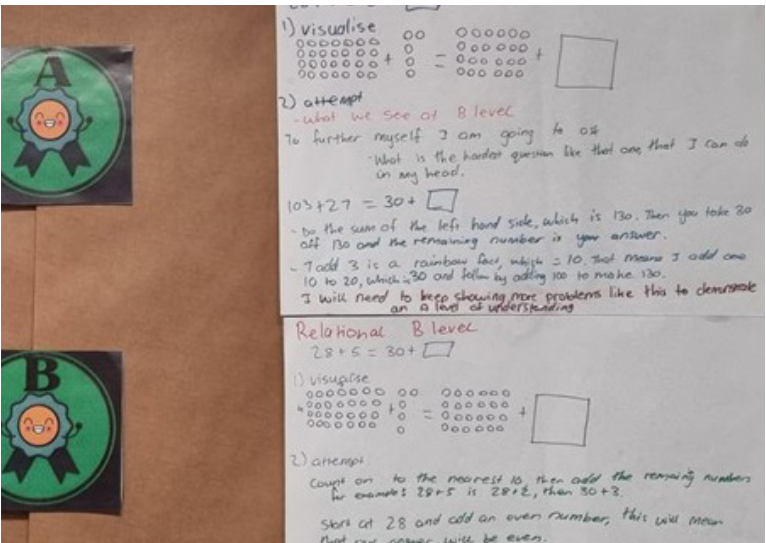 A
1) visualise
+
=
+
2) attempt
- what we see at B level
To further myself I am going to ask
"What is the hardest question like that one, that I can do
in my head.
103+27 = 30+
- Do the sum of the left hand side, which is 130. Then you take 30
off 130 and the remaining number is your answer.
- 7 add 3 is a rainbow fact, which = 10. That means I add one
10 to 20, which is 30 and follow by adding 100 to make 130.
I will need to keep showing more problems like this to demonstrate
an A level of understanding
B
Relational B level
28+5 = 30+
1) visualise
+
=
+
2) attempt
Count on to the nearest 10, then add the remaing numbers
for example: 28+5 is 28+2, then 30+3.
Start at 28 and add an even number, this will mean
that our answer will be even.